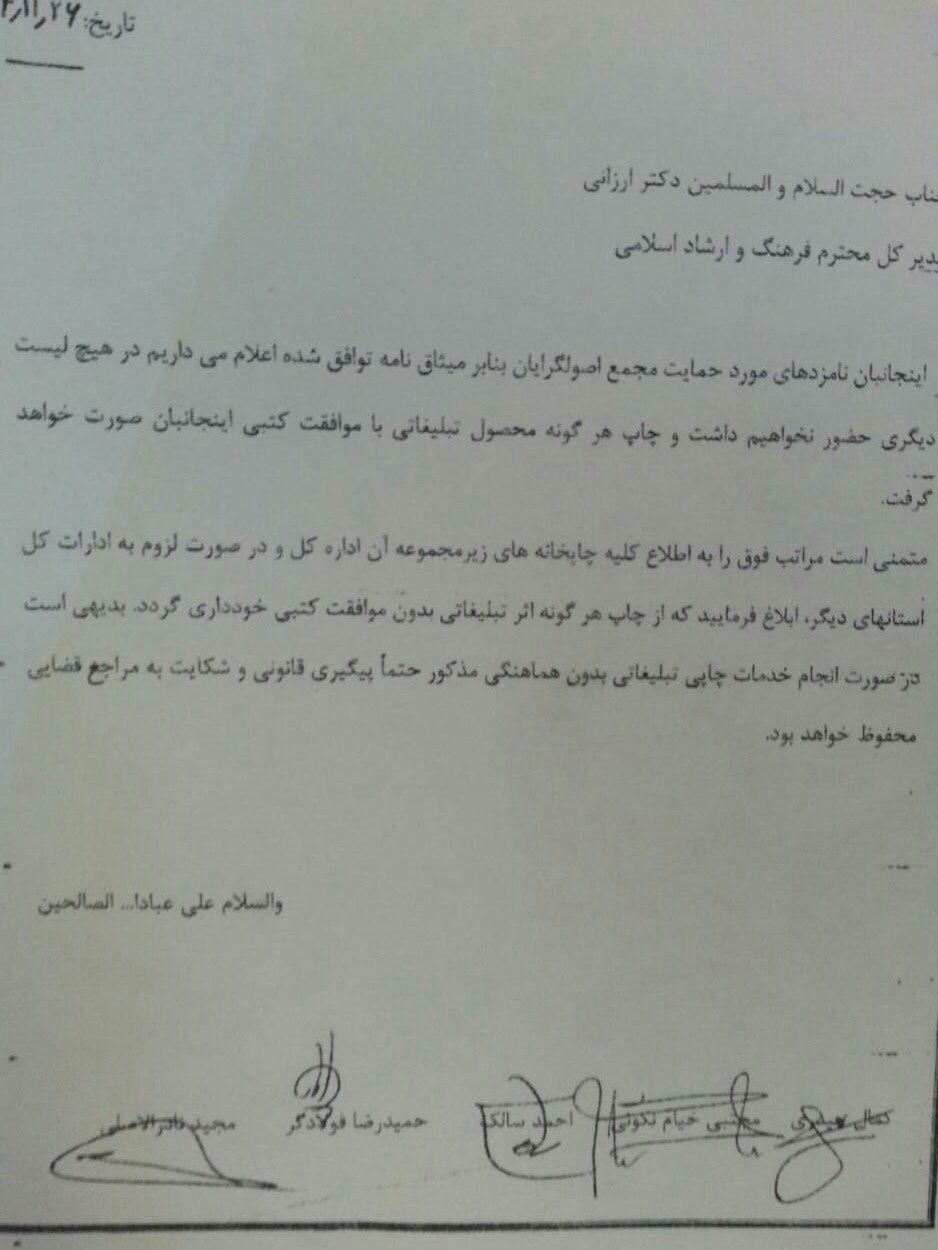 تاریخ:
حجت السلام و المسلمین دکتر ارزانی
مدیر کل محترم فرهنگ و ارشاد اسلامی
اینجانبان نامزدهای مورد حمایت مجمع اصولگرایان بنابر میثاق نامه توافق شده اعلام می داریم در هیچ لیست
دیگری حضور نخواهیم داشت و چاپ هر گونه محصول تبلیغاتی با موافقت کتبی اینجانبان صورت خواهد
گرفت.
متمنی است مراتب فوق را به اطلاع کلیه چاپخانه های زیرمجموعه آن اداره کل و در صورت لزوم به ادارات کل
استانهای دیگر، ابلاغ فرمایید که از چاپ هر گونه اثر تبلیغاتی بدون موافقت کتبی خودداری گردد. بدیهی است
در صورت انجام خدمات چاپی تبلیغاتی بدون هماهنگی مذکور حتماً پیگیری قانونی و شکایت به مراجع قضایی
محفوظ خواهد بود.
والسلام علی عبادا... الصالحین
کمال مجتبی خیام نکوئی احمد سالک حمیدرضا فولادگر مجید